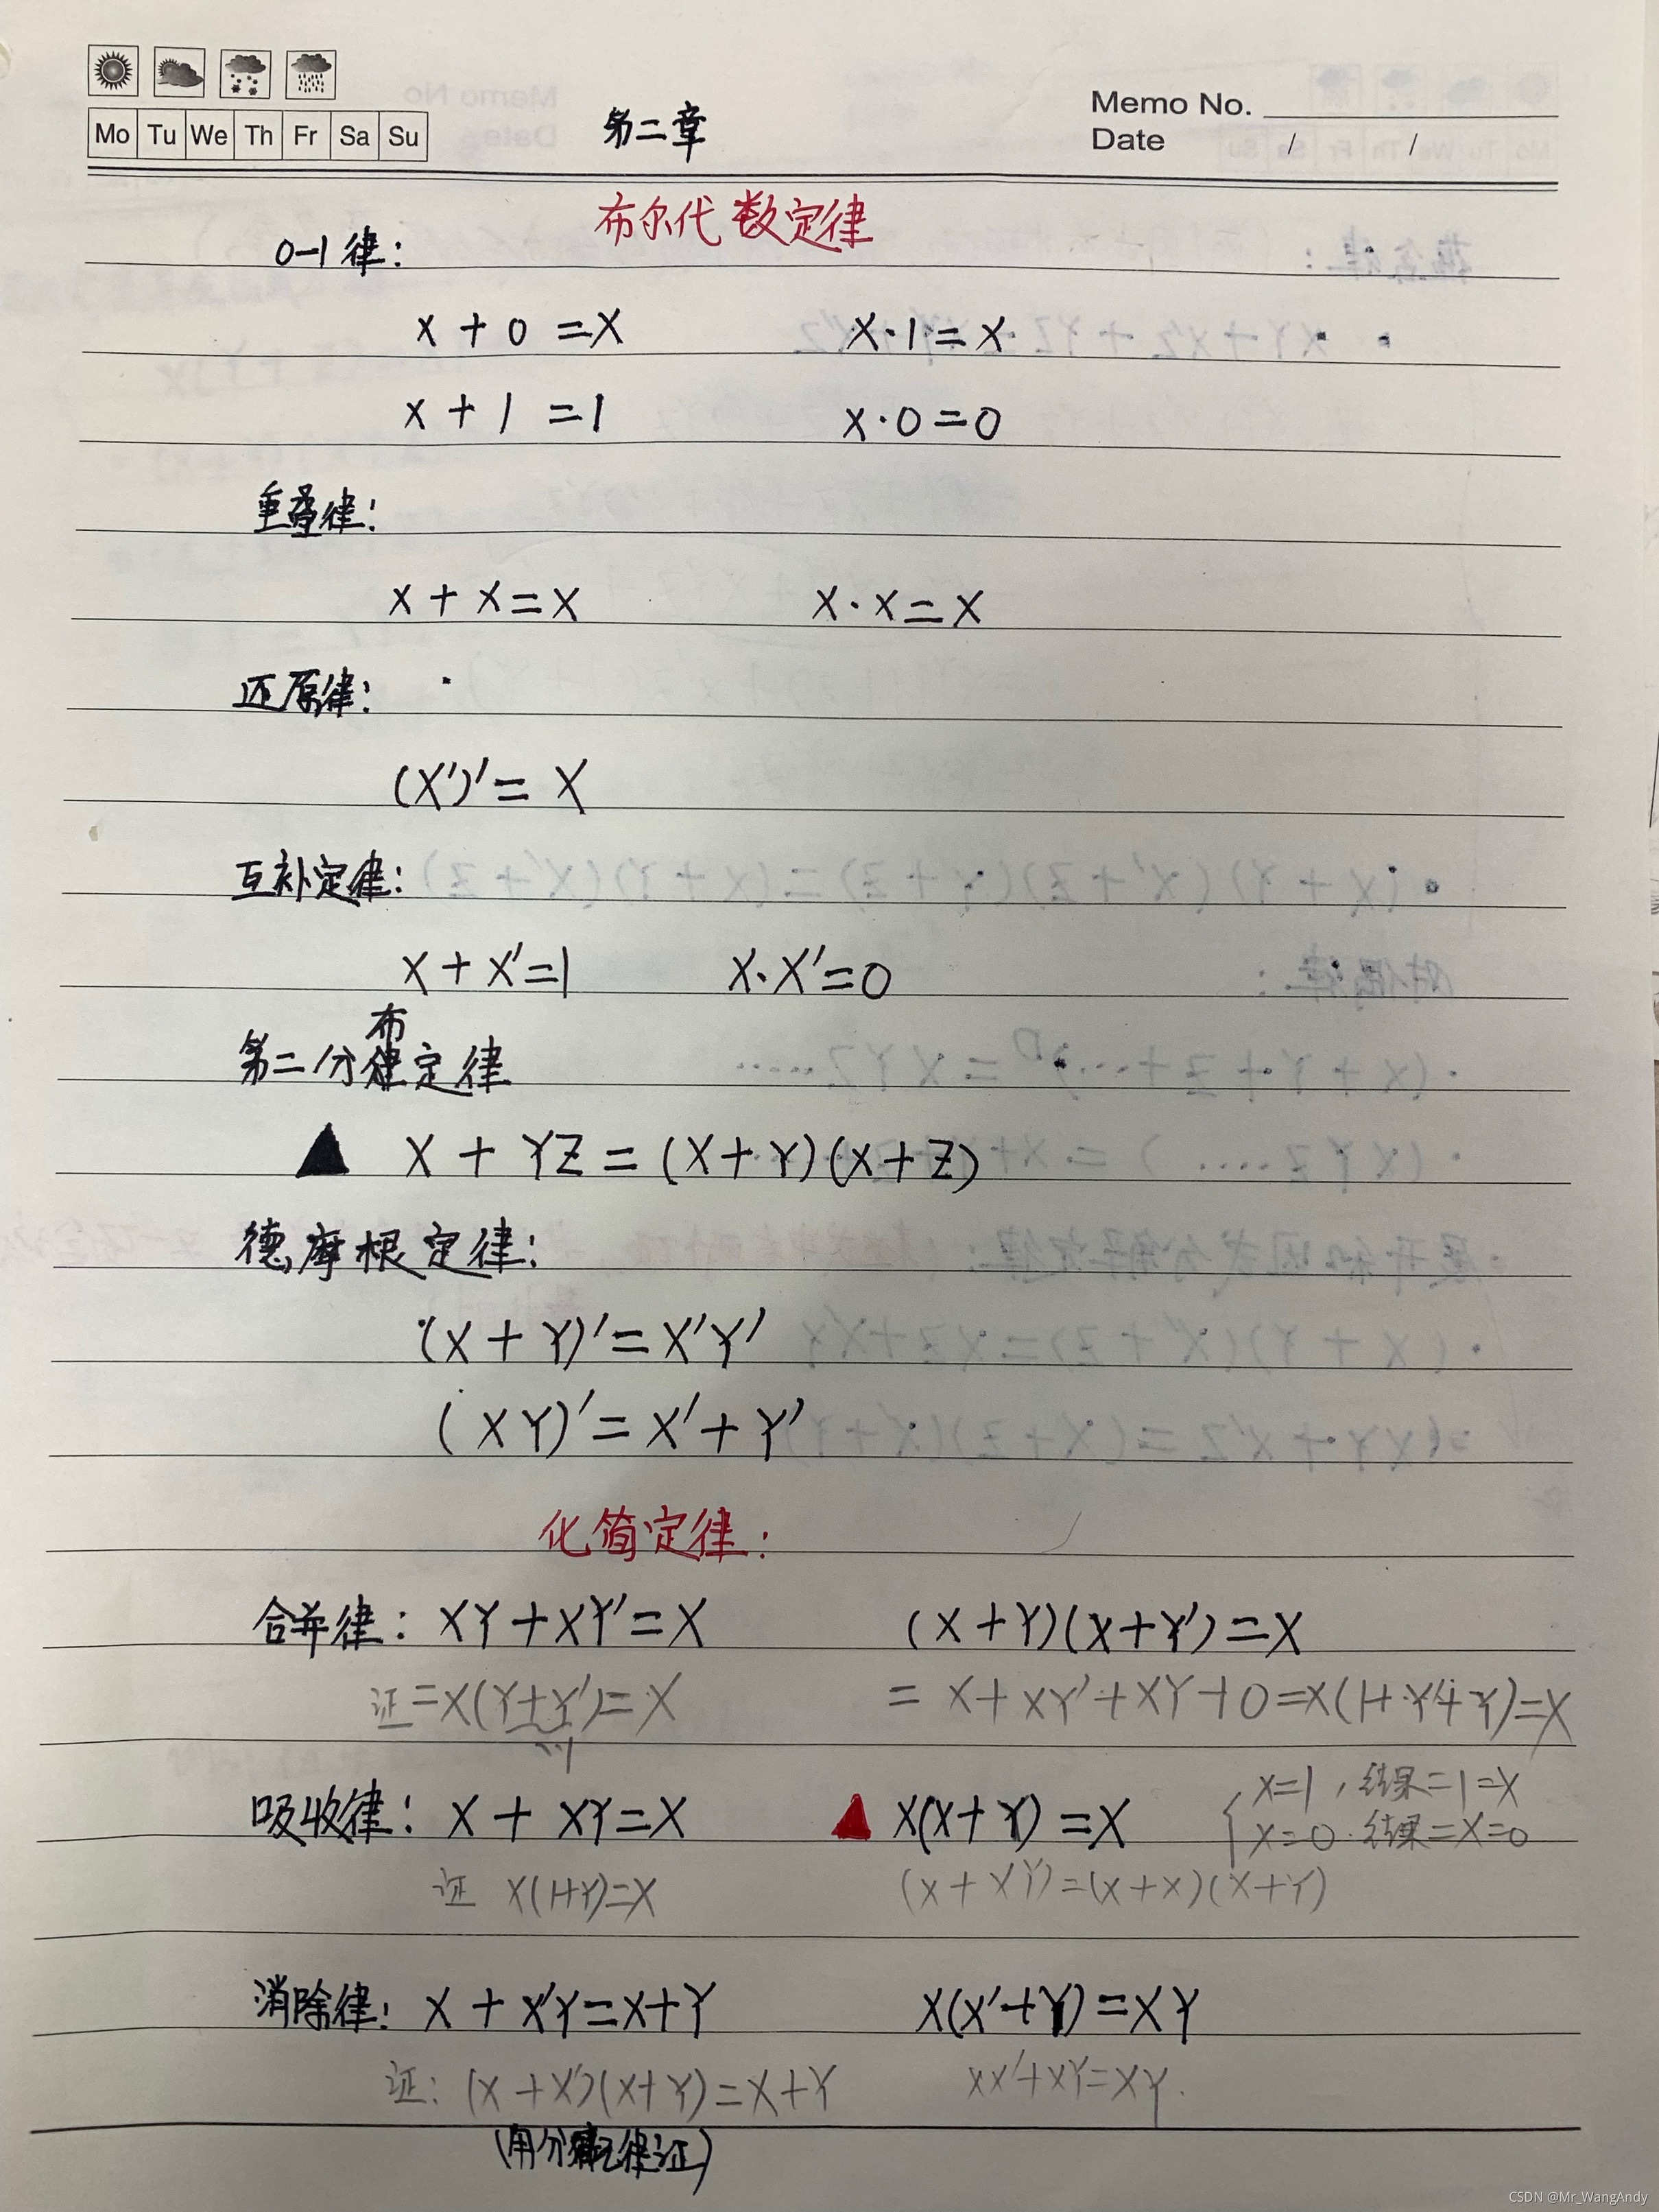 Mo Tu We Th Fr Sa Su
第二章
Memo No.
Date / /
布尔代数定律
0-1律：
X + 0 = X X·1 = X
X + 1 = 1 X·0 = 0
重叠律：
X + X = X X·X = X
还原律：
(X')' = X
互补定律：
X + X' = 1 X·X' = 0
布
第二分律定律
▲ X + YZ = (X+Y)(X+Z)
德摩根定律：
(X + Y)' = X'Y'
(XY)' = X' + Y'
化简定律：
合并律： XY + XY' = X (X+Y)(X+Y') = X
证 = X(Y+Y') = X = X + XY' + XY + 0 = X(1+Y'+Y) = X
=1
吸收律： X + XY = X ▲ X(X+Y) = X
X=1，结果=1=X
X=0. 结果=X=0
证 X(1+Y)=X (X+XY)=(X+X)(X+Y)
消除律： X + X'Y = X+Y X(X'+Y) = XY
证： (X+X')(X+Y) = X+Y XX'+XY=XY.
(用分律证)
CSDN @Mr_WangAndy